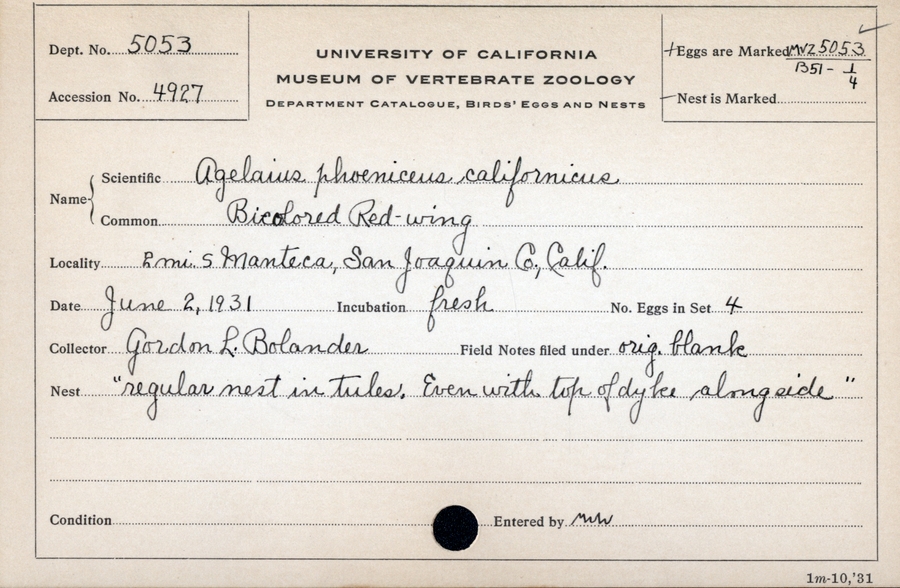 Dept. No. 5053
Accession No. 4927
UNIVERSITY OF CALIFORNIA
MUSEUM OF VERTEBRATE ZOOLOGY
DEPARTMENT CATALOGUE, BIRDS' EGGS AND NESTS
Eggs are Marked MVZ 5053
B51- 1/4
Nest is Marked
Name
Scientific Agelaius phoeniceus californicus
Common Bicolored Red-wing
Locality 2 mi. S Manteca, San Joaquin Co., Calif.
Date June 2, 1931 Incubation fresh No. Eggs in Set 4
Collector Gordon L. Bolander Field Notes filed under orig. blank
Nest "regular nest in tules. Even with top of dyke alongside"
Condition Entered by
1m-10,'31